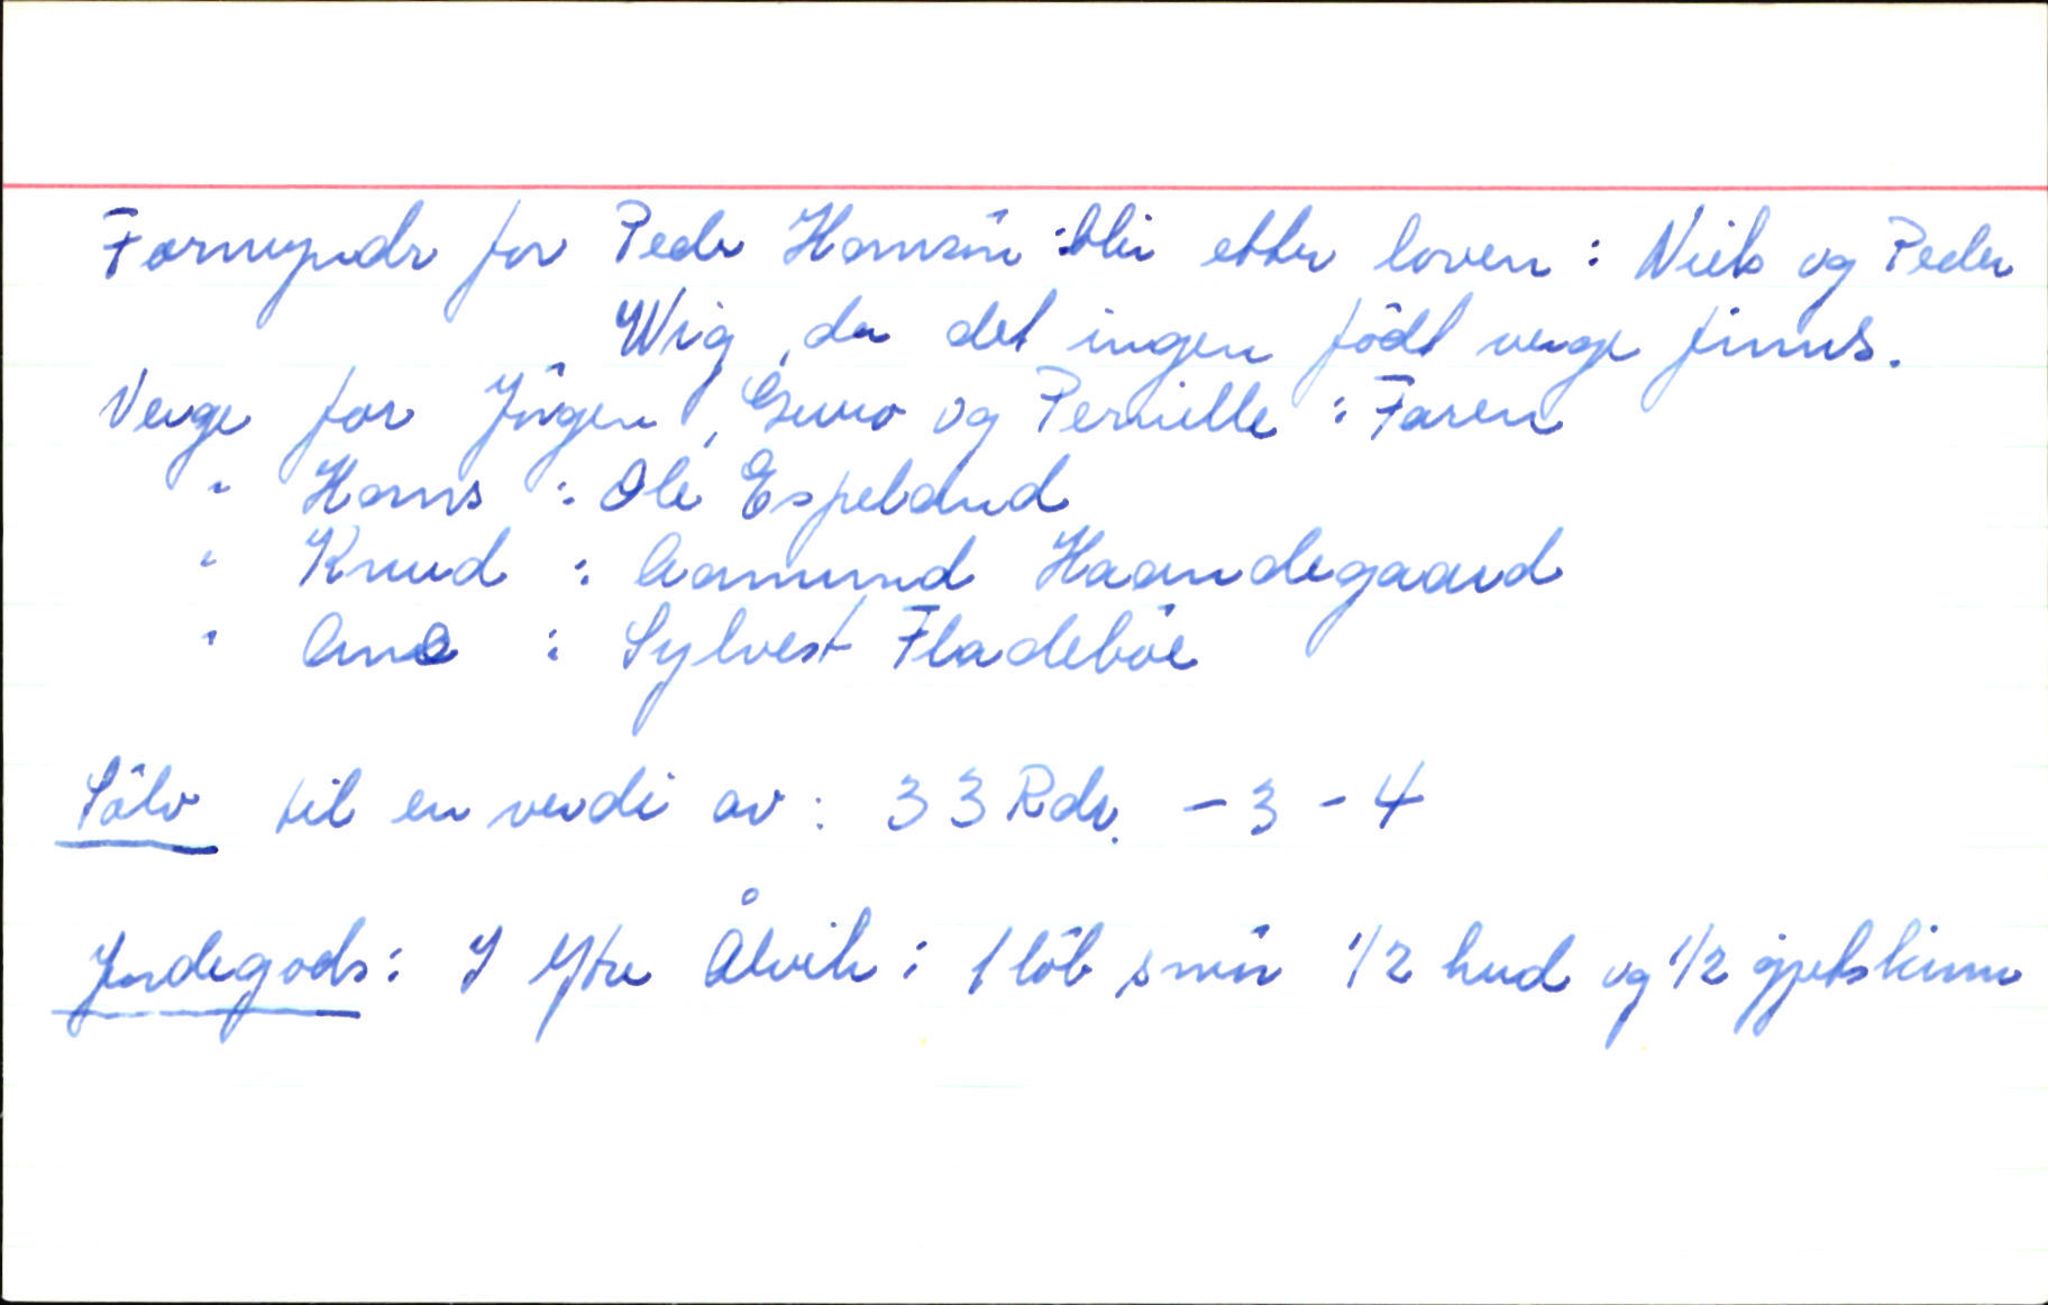 Formyndr for Peder Hansön blir etter loven : Niels og Peder
Wig, da det ingen födt verge finns.
Verge for Jörgen, Guro og Pernille : Faren
" Hans : Ole Espeland
" Knud : Aamund Haandegaard
" Ana : Sylvest Fladeböe
Sölv til en verdi av : 33 Rdr. - 3 - 4
Jordegods : I Ytre Ålvik : 1 löb smör 1/2 hud og 1/2 gjetskinn